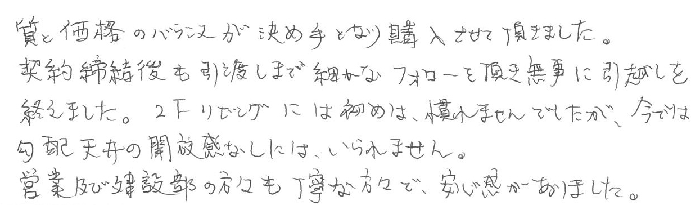 質と価格のバランスが決め手となり購入させて頂きました。
契約締結後も引渡しまで細かなフォローを頂き無事に引越しを
終えました。2Fリビングには初めは、慣れませんでしたが、今では
勾配天井の開放感なしには、いられません。
営業及び建設部の方々も丁寧な方々で、安心感がありました。